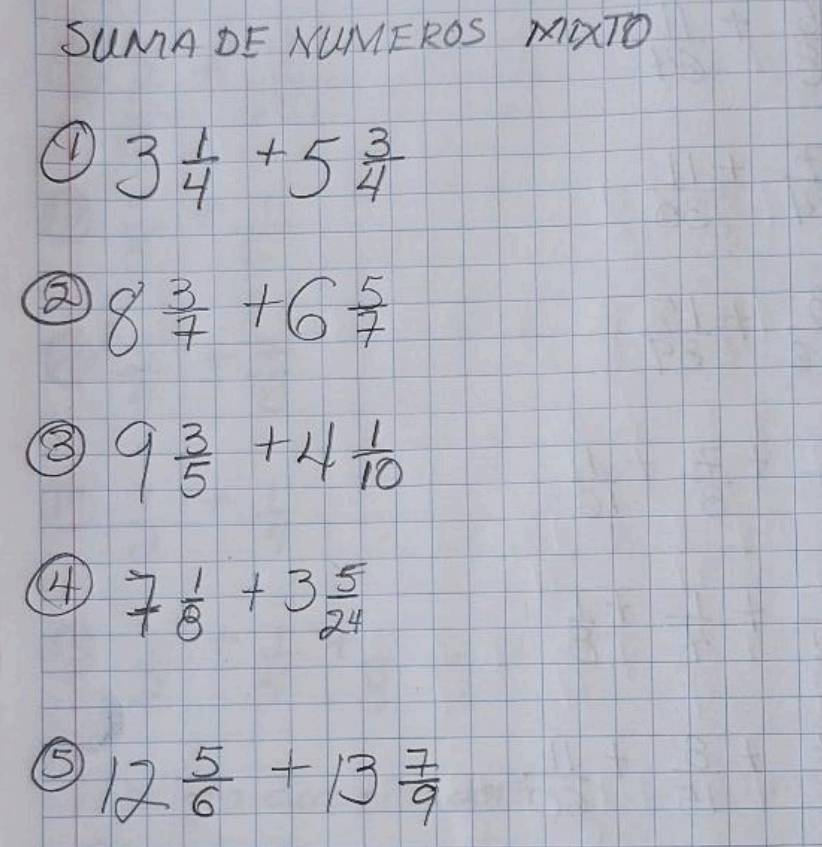 SUMA DE NUMEROS MIXTO
① 3 1/4 + 5 3/4
② 8 3/7 + 6 5/7
③ 9 3/5 + 4 1/10
④ 7 1/8 + 3 5/24
⑤ 12 5/6 + 13 7/9